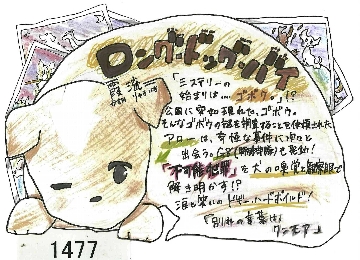 ロング・ドッグ・バイ
霞 流一
「ミステリーの
始まりは…. ゴボウ。」!?
公園に突如現れた、ゴボウ。
そんなゴボウの謎を捜査することを依頼された
アローは、奇怪な事件に次々と
出会う。
「不可能犯罪」を犬の嗅覚と観察眼で
解き明かす!?
涙と笑いのドギー・ハードボイルド!
「別れの言葉は
ワンモア…」
1477